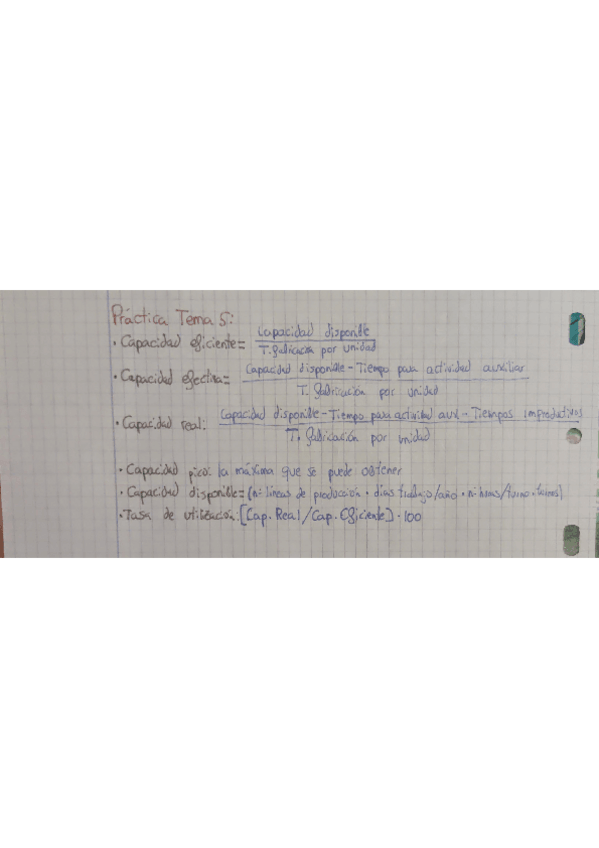 Práctica Tema 5:
· Capacidad eficiente = Capacidad disponible / T. fabricación por unidad
· Capacidad efectiva = Capacidad disponible - Tiempo para actividad auxiliar / T. fabricación por unidad
· Capacidad real: Capacidad disponible - Tiempo para actividad auxil - Tiempos improductivos / T. fabricación por unidad
· Capacidad pico: la máxima que se puede obtener
· Capacidad disponible = (nº líneas de producción · días trabajo/año · nº horas/turno · turnos)
· Tasa de utilización: [Cap. Real / Cap. Eficiente] · 100